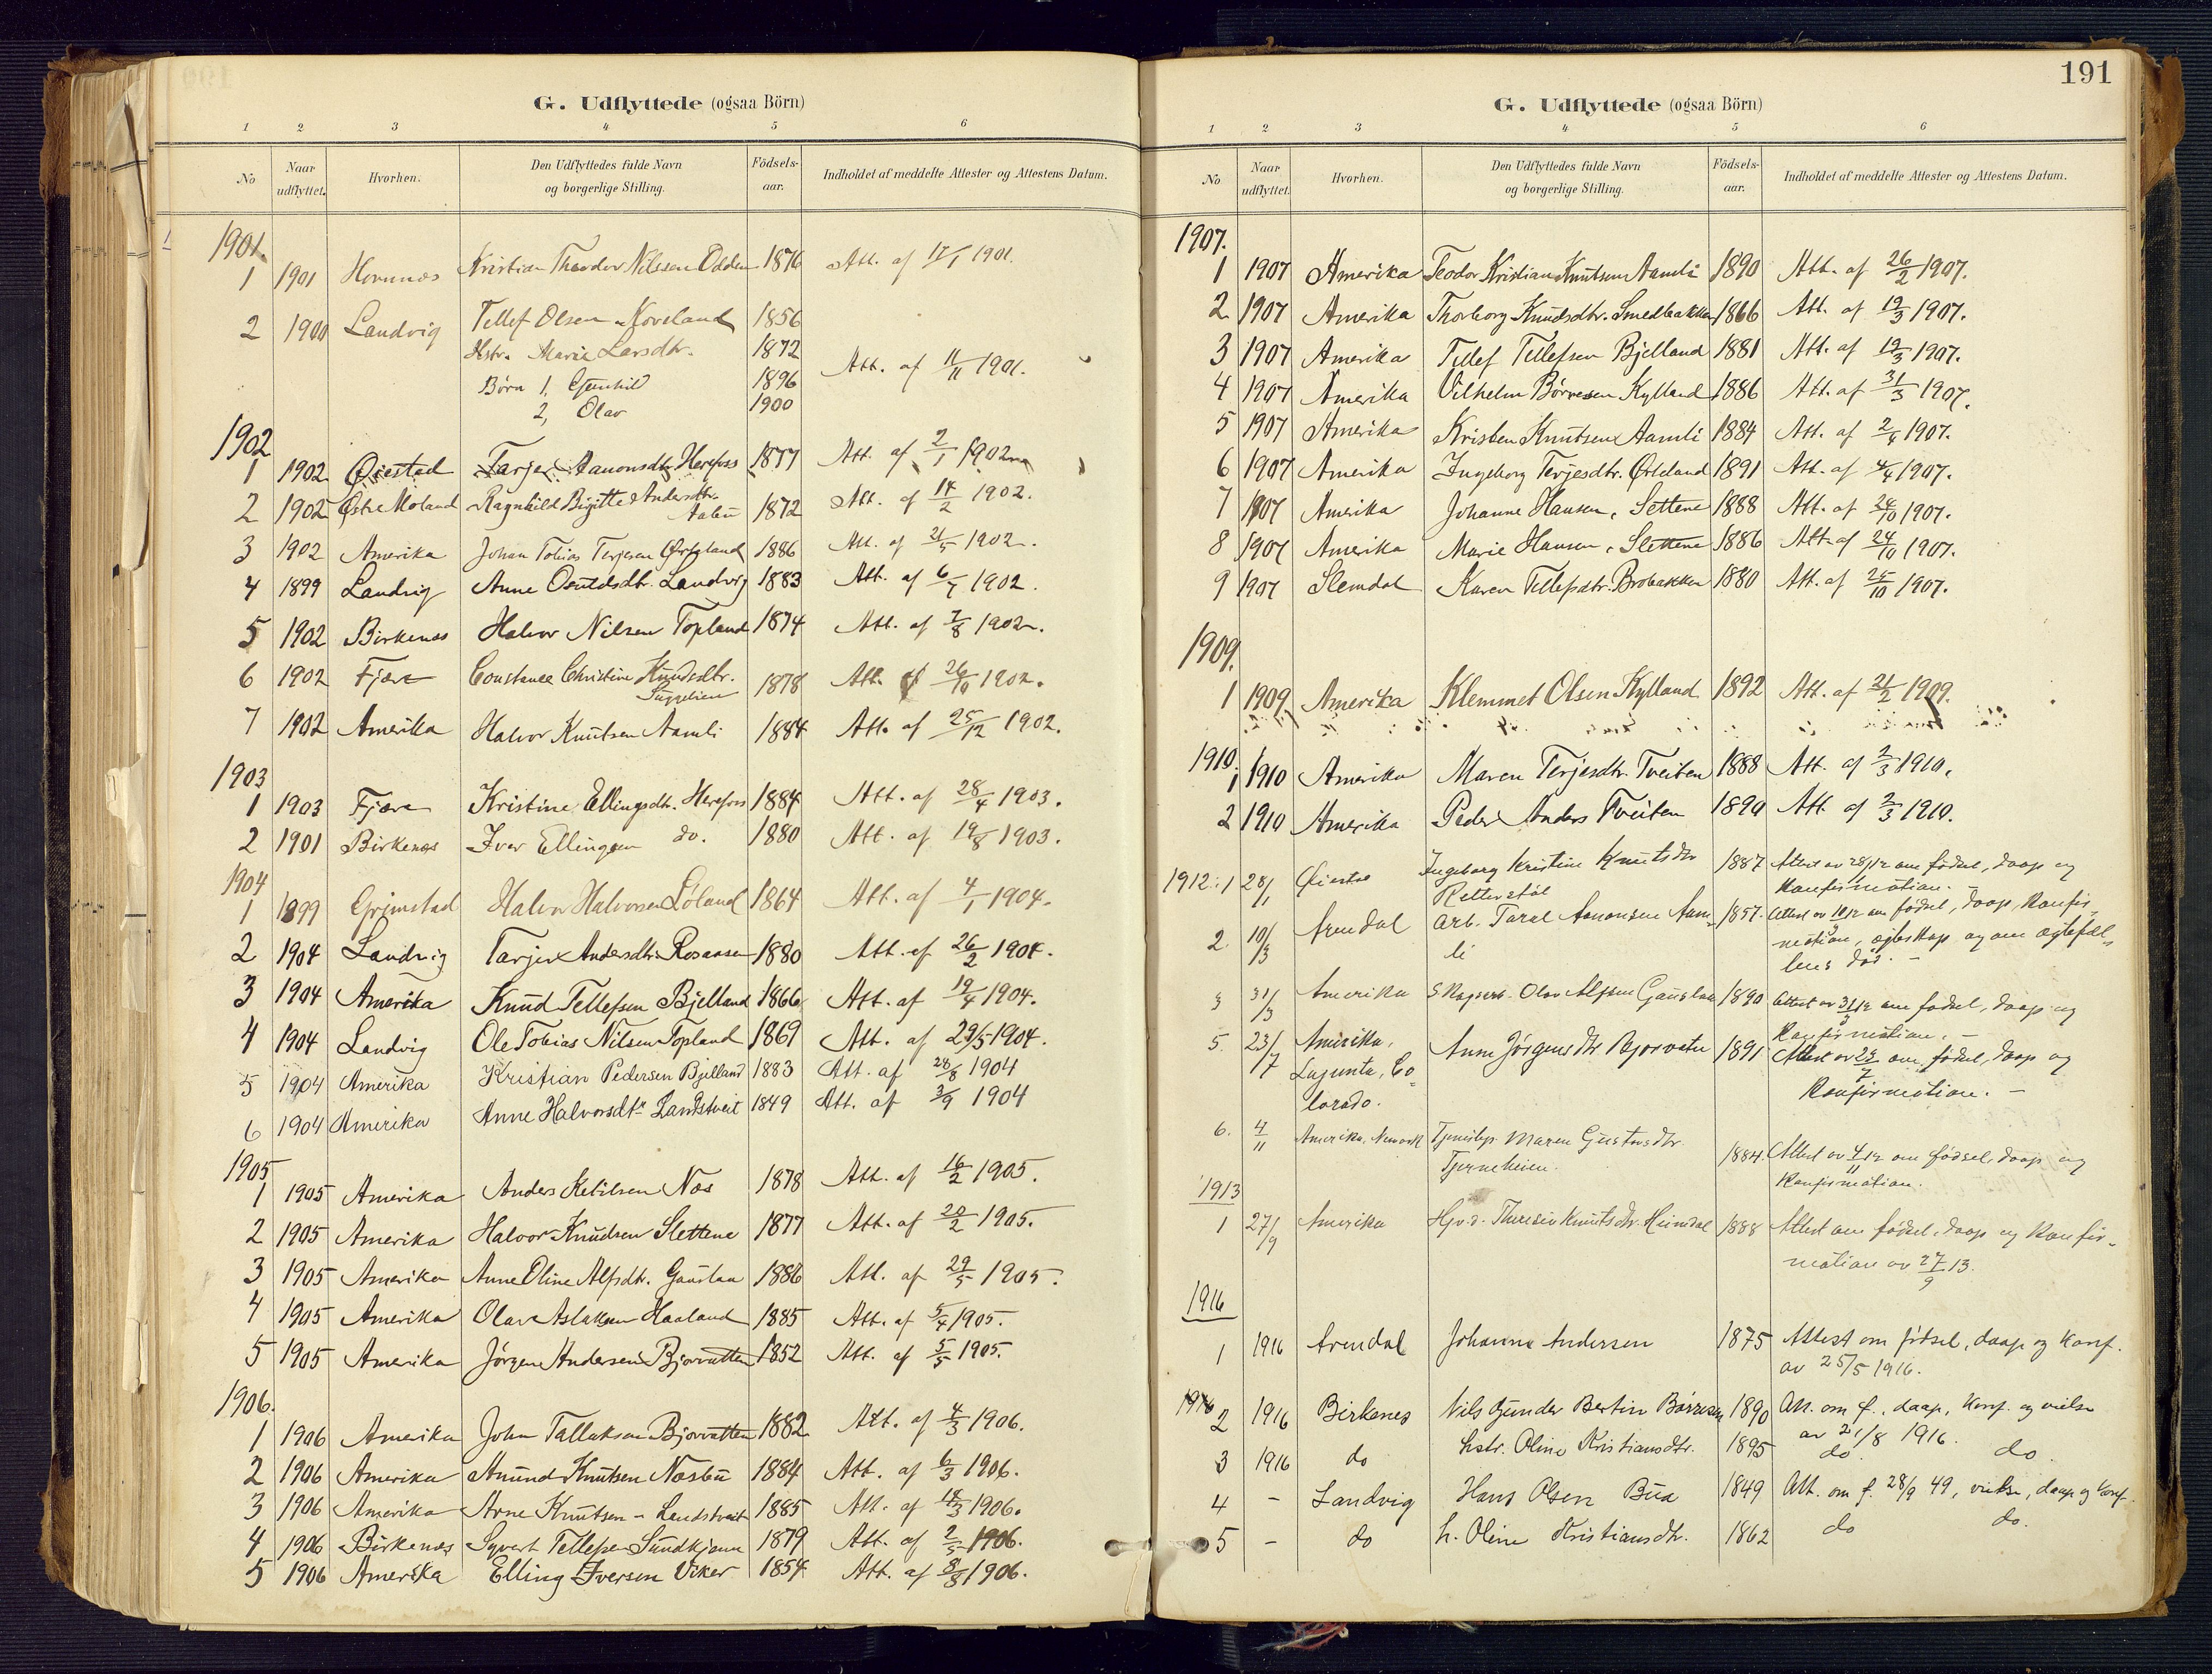 G. Udflyttede (ogsaa Börn)
1 2 3 4 5 6
No Naar udflyttet. Hvorhen. Den Udflyttedes fulde Navn og borgerlige Stilling. Födsels-aar. Indholdet af meddelte Attester og Attestens Datum.
1901.
1 1901 Kristian Theodor Nilssen Odden 1876 Att. af 1901.
2 1900 Landvig Tellef Olsen Koveland 1856
Hstr. Marie Larsdtr. 1872
Börn 1, Gunhild 1896 Att. af 11/11 1901.
2, Olav 1900
1902
1 1902 Öiestad Tarjer Aanonsdtr. Herefoss 1877 Att. af 2/1 1902
2 1902 Østre Moland Ragnhild Birgitte Andersdtr. 1872 Att. af 14/2 1902.
3 1902 Amerika Johan Tobias Terjesen 1886 Att. af 21/5 1902.
4 1899 Landvig Anne Landvig 1883 Att. af 1902.
5 1902 Birkenes Halvor Nilsen Topland 1874 Att. af 7/8 1902.
6 1902 Fjære Constance Christine Knudsdtr. 1878 Att. af 1902.
7 1902 Amerika Halvor Knutsen Aamli 1884 Att. af 25/12 1902.
1903
1 1903 Fjære Kristine Ellingsdtr. Herefoss 1884 Att. af 28/4 1903.
2 1901 Birkenes Iver Ellingsen do. 1880 Att. af 19/8 1903.
1904
1 1899 Grimstad Halvor Halvorsen Löland 1864 Att. af 4/1 1904.
2 1904 Landvig Tarjer Andersdtr. Rosaasen 1880 Att. af 26/2 1904.
3 1904 Amerika Knud Tellefsen Bjelland 1866 Att. af 19/4 1904.
4 1904 Landvig Ole Tobias Nilsen Topland 1869 Att. af 29/5 1904.
5 1904 Amerika Kristian Pedersen Bjelland 1883 Att. af 28/8 1904
6 1904 Amerika Anne Halvorsdtr. Landstveit 1849 Att. af 3/9 1904
1905
1 1905 Amerika Anders Ketilsen Næs 1878 Att. af 16/2 1905.
2 1905 Amerika Halvor Knudsen Slettene 1877 Att. af 20/2 1905.
3 1905 Amerika Anne Oline Alfsdtr. Gauslaa 1886 Att. af 29/5 1905.
4 1905 Amerika Olav Aslaksen Haaland 1885 Att. af 5/4 1905.
5 1905 Amerika Jörgen Andersen Bjorvatten 1852 Att. af 5/5 1905.
1906.
1 1906 Amerika John Tallaksen Bjorvatten 1882 Att. af 4/3 1906.
2 1906 Amerika Amund Knutsen Næsbu 1884 Att. af 6/3 1906.
3 1906 Amerika Arne Knutsen Landstveit 1885 Att. af 1906.
4 1906 Birkenes Syvert Tellefsen Sundkjønn 1879 Att. af 1906.
5 1906 Amerika Elling Iversen Viker 1854 Att. af 1906.
191
G. Udflyttede (ogsaa Börn)
1 2 3 4 5 6
No Naar udflyttet. Hvorhen. Den Udflyttedes fulde Navn og borgerlige Stilling. Födsels-aar. Indholdet af meddelte Attester og Attestens Datum.
1907.
1 1907 Amerika Teodor Kristian Knutsen Aamli 1890 Att. af 26/2 1907.
2 1907 Amerika Thorborg Knudsdtr. Smedbakken 1866 Att. af 19/3 1907.
3 1907 Amerika Tellef Tellefsen Bjelland 1881 Att. af 19/3 1907.
4 1907 Amerika Vilhelm Börresen Kylland 1886 Att. af 31/3 1907.
5 1907 Amerika Kristen Knutsen Aamli 1884 Att. af 2/4 1907.
6 1907 Amerika Ingeborg Terjesdtr. 1891 Att. af 4/4 1907.
7 1907 Amerika Johanne Hansen, Slettene 1888 Att. af 24/10 1907.
8 1907 Amerika Marie Hansen, Slettene 1886 Att. af 24/10 1907.
9 1907 Slemdal Karen Tellefsdtr. Brobakken 1880 Att. af 25/10 1907.
1909.
1 1909 Amerika Klemmet Olsen Kylland 1892 Att. af 21/2 1909.
1910.
1 1910 Amerika Maren Terjesdtr. Tveiten 1888 Att. af 2/3 1910.
2 1910 Amerika Peder Anders Tveiten 1890 Att. af 2/3 1910.
1912: 1 28/1 Øiestad Ingeborg Kristine Knutsdtr 1887 Attest av 28/1 12 om födsel, daap og
Retterstöl konfirmation. -
2. 10/3 Arendal Arb. Taral Aanonsen Aam- 1857. Attest av 10/3 12 om födsel, daap, konfir-
li mation, egteskap og om egtefæl-
lens död. -
3 31/3 Amerika Olav Alfsen Gauslaa 1890 Attest av 31/3 12 om födsel, daap og
Konfirmation. -
5. 23/7 Amerika, Anne Jörgensdtr Bjorvatn 1891 Attest av 23/7 om födsel, daap og
Lajunta, Co- Konfirmation. -
lorado.
6. 4/11 Amerika, Newark Tjenestep. Maren Gustavsdtr. 1884. Attest av 4/11 12 om födsel, daap og
Tjerneheien. Konfirmation.
1913
1 27/9 Amerika Theresie Knutsdtr. Heimdal 1888 Attest om födsel, daap og Konfir-
mation av 27/9 13.
1916
1 1916 Arendal Johanne Andersen 1875 Attest om födsel, daap og konf.
av 25/5 1916.
1916 2 1916 Birkenes Nils Gunder Bertin Börresen 1890 Att. om f., daap, konf. og vielse
av 21/8 1916.
3 1916 do hstr. Oline Kristiansdtr. 1895 do. do
4 - Landvig Hans Olsen Bua 1849 Att. om f. 28/9 49, vielse, daap og konf.
5 - do h. Oline Kristiansdtr. 1862 do do.